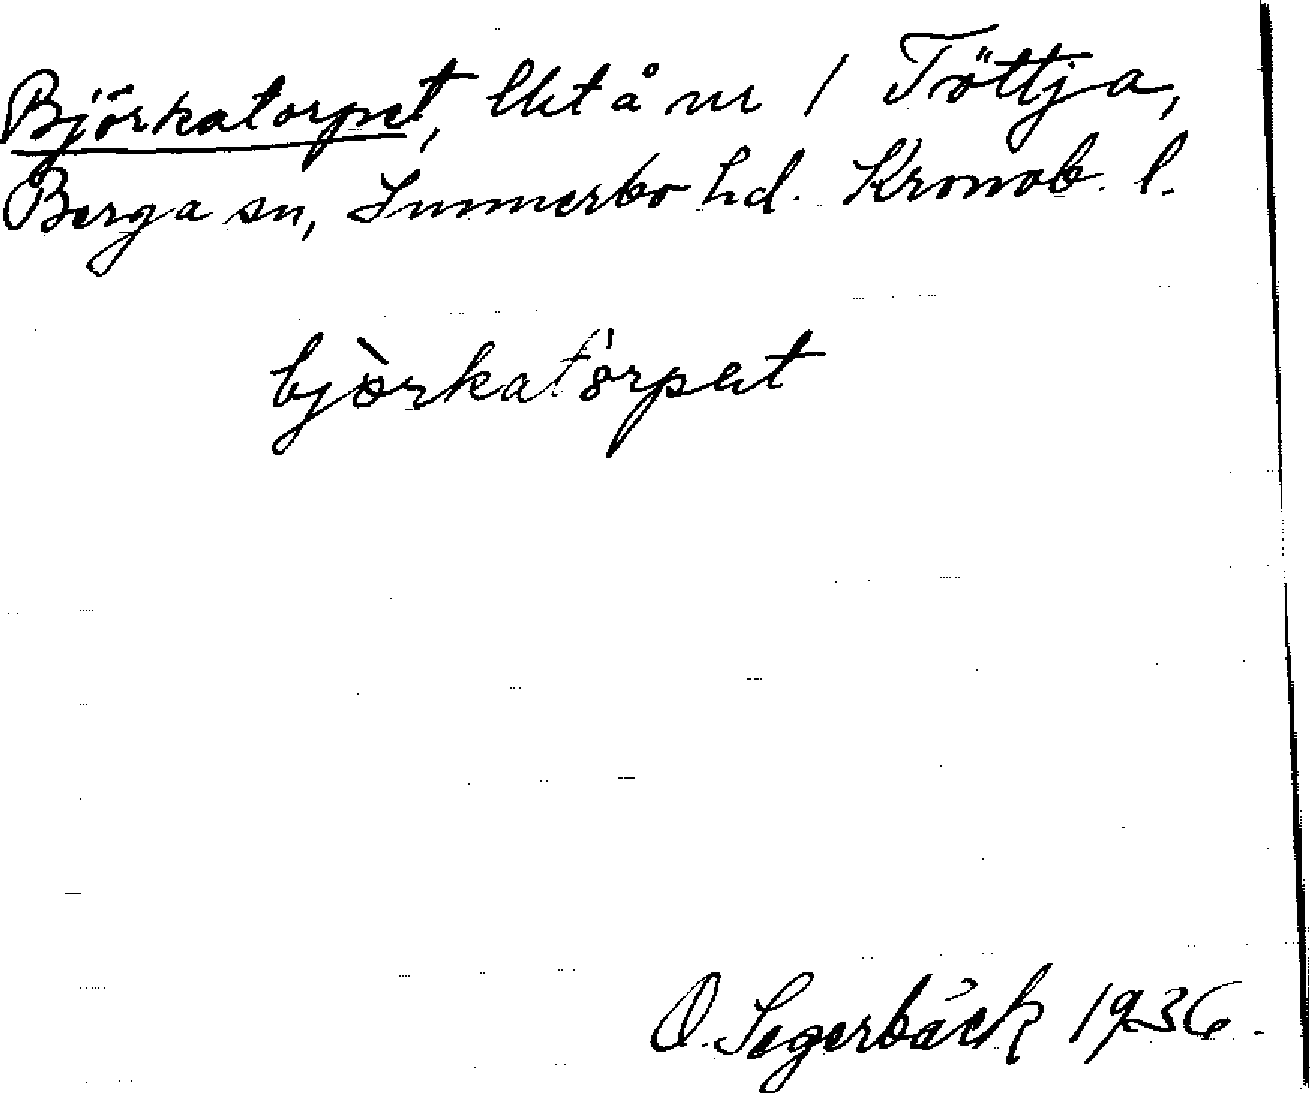 Björkatorpet, lht å nr 1 Töttja,
Berga sn, Sunnerbo hd. Kronob. l.
bjòrkatórpet
O. Segerbäck 1936.